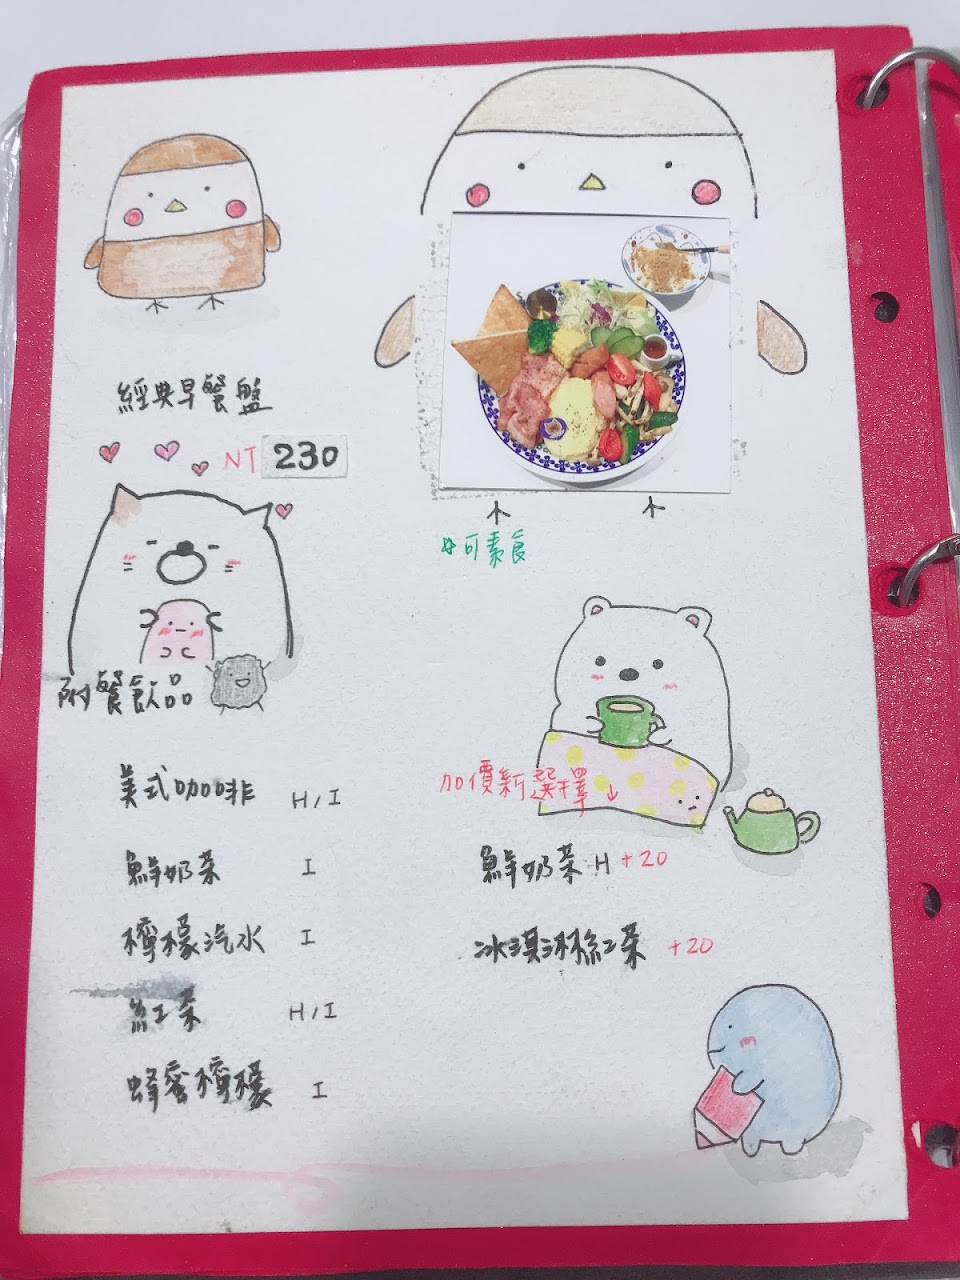 經典早餐盤
NT 230
#可素食
附餐飲品
美式咖啡 H/I
鮮奶茶 I
檸檬汽水 I
紅茶 H/I
蜂蜜檸檬 I
加價新選擇↓
鮮奶茶 H +20
冰淇淋紅茶 +20